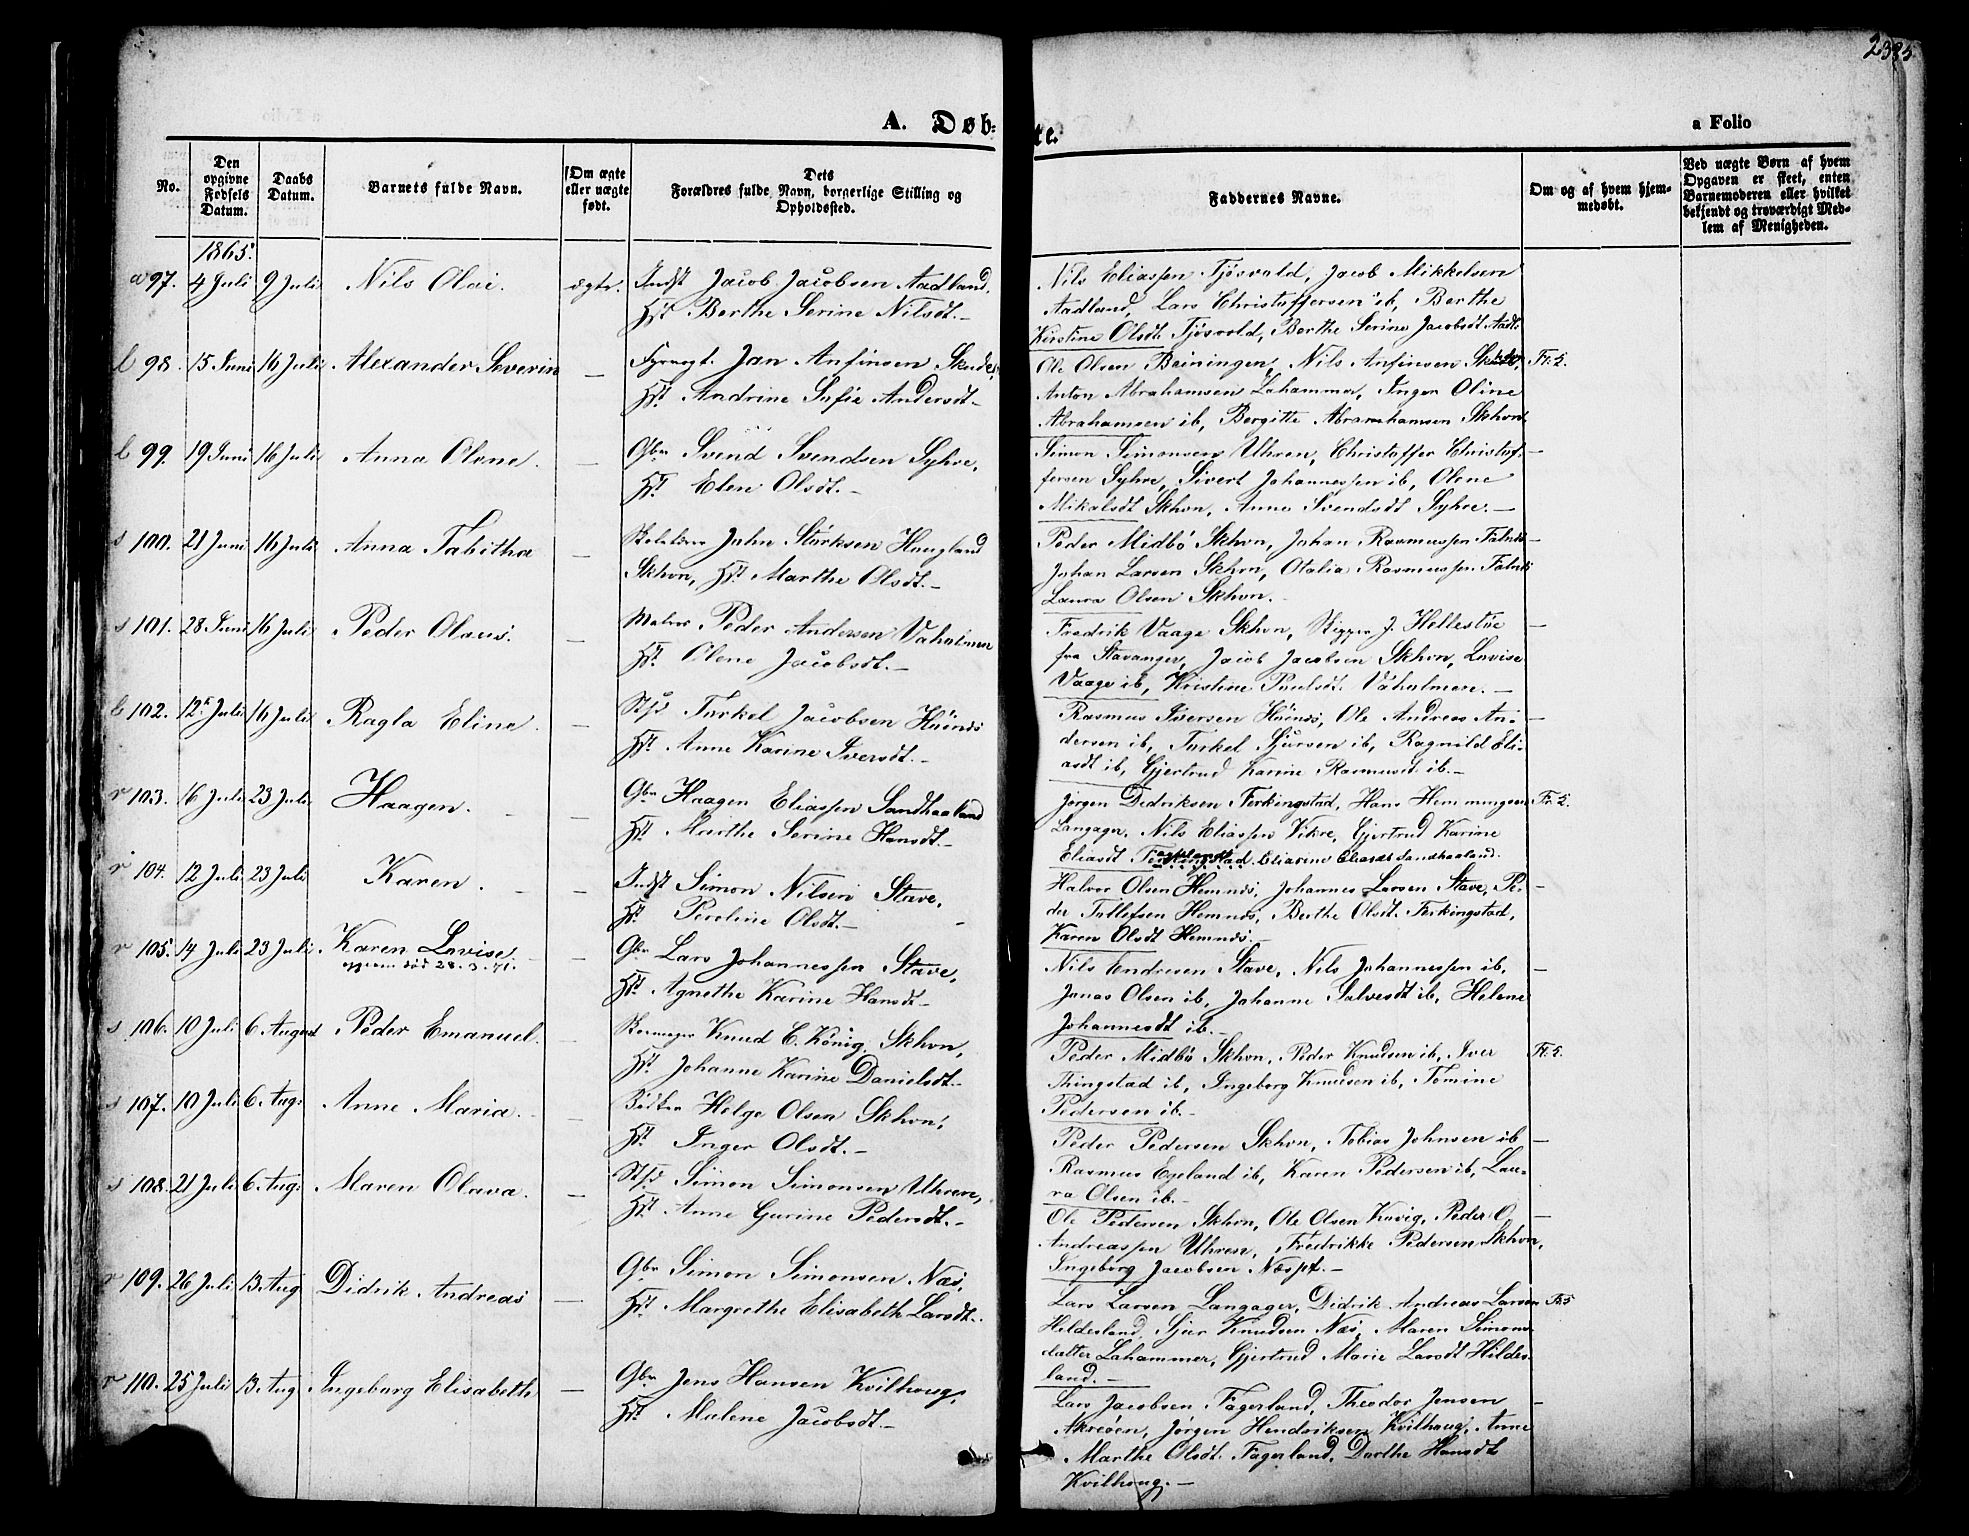 A. Døb:
te.
a Folio
No.
Den opgivne Fødsels Datum.
Daabs Datum.
Barnets fulde Navn.
Om ægte eller uægte født.
Dets Forældres fulde Navn, borgerlige Stilling og Opholdssted.
Faddernes Navne.
Om og af hvem hjem-
medøbt.
Ved uægte Børn af hvem
Opgaven er skeet, enten
Barnemoderen eller hvilket
bekjendt og troværdigt Med-
lem af Menigheden.
1865.
97. 4 Juli 9 Juli Nils Olai ægte. Indst Jacob Jacobsen Aadland.
Hst Berthe Serine Nilsdt.-
Nils Eliassen Tjøsvold, Jacob Mikkelsen
Aadland, Lars Christoffersen ib, Berthe
Kirstine Olsdt Tjøsvold, Berthe Serine Jacobsdt Aadl:
98. 15 Juni 16 Juli Alexander Severin — Jan Anfinsen Skudes.
Hst Andrine Sofie Andersdt-
Ole Olsen Beiningen, Nils Anfinsen Fr. 5.
Anton Abrahamsen Lahammer, Inger Oline
Abrahamsen ib, Bergitte Abrahamsen Skhvn
99. 19 Juni 16 Juli Anna Olene. — Gbr Svend Svendsen Syhre,
Hst. Elen Olsdt.-
Simon Simonsen Uhren, Christoffer Christof- —
fersen Syhre, Sivert Johannessen ib, Olene
Mikalsdt Skhvn, Anne Svendsdt Syhre.-
s 100. 21 Juni 16 Juli Anna Tabitha — John Størksen Haugland
Skhvn, Hst. Marthe Olsdt.-
Peder Midbö Skhvn, Johan Rasmussen —
Johan Larsen Skhvn, Otalia Rasmussen
Laura Olsen Skhvn.
s 101. 28 Juni 16 Juli Peder Olaus. — Peder Andersen Vaholmen
Hst. Olene Jacobsdt.-
Fredrik Vaage Skhvn, Skipper J. Hellestöe —
fra Stavanger, Jacob Jacobsen Skhvn, Lovise
Vaage ib, Kristine Paulsdt. Vaholmen.-
102. 12 Juli 16 Juli Ragla Eline. — Torkel Jacobsen
Hst. Anne Karine Iversdt.-
Rasmus Iversen Ole Andreas An- —
dersen ib, Torkel Sjursen ib, Ragnild Eli-
asdt ib, Gjertrud Karine Rasmusdt ib.-
r 103. 16 Juli 23 Juli Haagen. — Gbr Haagen Eliassen Sandhaaland
Hst. Marthe Serine Hansdt.-
Jørgen Didriksen Ferkingstad, Hans Hemmingsen Fr. 5.
Langager, Nils Eliassen Vikre, Gjertrud Karine
Eliasdt Ferkingstad. Eliasdt Sandhaaland.
r 104. 12 Juli 23 Juli Karen. — Indst Simon Nilsen Stave,
Hst. Peroline Olsdt.-
Halvor Olsen Hemnes, Johannes Larsen Stave, Pe- —
der Tollefsen Hemnes, Berthe Olsdt. Ferkingstad,
Karen Olsdt Hemnes.
r 105. 14 Juli 23 Juli. Karen Lovise. — Gbr Lars Johannessen Stave,
død 28.3.41.
Hst. Agnethe Karine Hansdt-
Nils Endresen Stave, Nils Johannessen ib, —
Jonas Olsen ib, Johanne Salvesdt ib, Helene
Johannesdt ib.-
s 106. 10 Juli 6 August Peder Emanuel. — Knud C. König, Skhvn,
Hst. Johanne Karine Danielsdt.-
Peder Midbö Skhvn, Peder Knudsen ib, Iver Fr. 5.
Thingstad ib, Ingeborg Knudsen ib, Tomine
Pedersen ib.-
s 107. 10 Juli 6. Aug: Anne Maria. — Bödker Helge Olsen Skhvn,
Hst. Inger Olsdt.-
Peder Pedersen Skhvn, Tobias Johnsen ib —
Rasmus Egeland ib, Karen Pedersen ib, Lau-
ra Olsen ib.-
s 108. 21 Juli 6 Aug: Maren Olava. — Simon Simonsen Uhren,
Hst. Anne Gurine Pedersdt.-
Ole Pedersen Skhvn, Ole Olsen Knvig, Peder O. —
Andreassen Uhren, Fredrikke Pedersen Skhvn,
Ingeborg Jacobsen Næspt.-
r 109. 26 Juli 13. Aug Didrik Andreas — Gbr Simon Simonsen Næs,
Hst. Margrethe Elisabeth Larsdt.
Lars Larsen Langager, Didrik Andreas Larsen Fr. 5
Hilderland, Sjur Knudsen Næs, Maren Simons-
datter Lahammer, Gjertrud Marie Larsdt Hildes-
land.-
r 110. 25 Juli 13. Aug Ingeborg Elisabeth — Gbr Jens Hansen Kvilhoug,
Hst. Malene Jacobsdt.-
Lars Jacobsen Fagerland, Theodor Jensen —
Akreøen, Jørgen Hendriksen Kvilhoug, Anne
Marthe Olsdt. Fagerland, Dorthe Hansdt
Kvilhoug.-